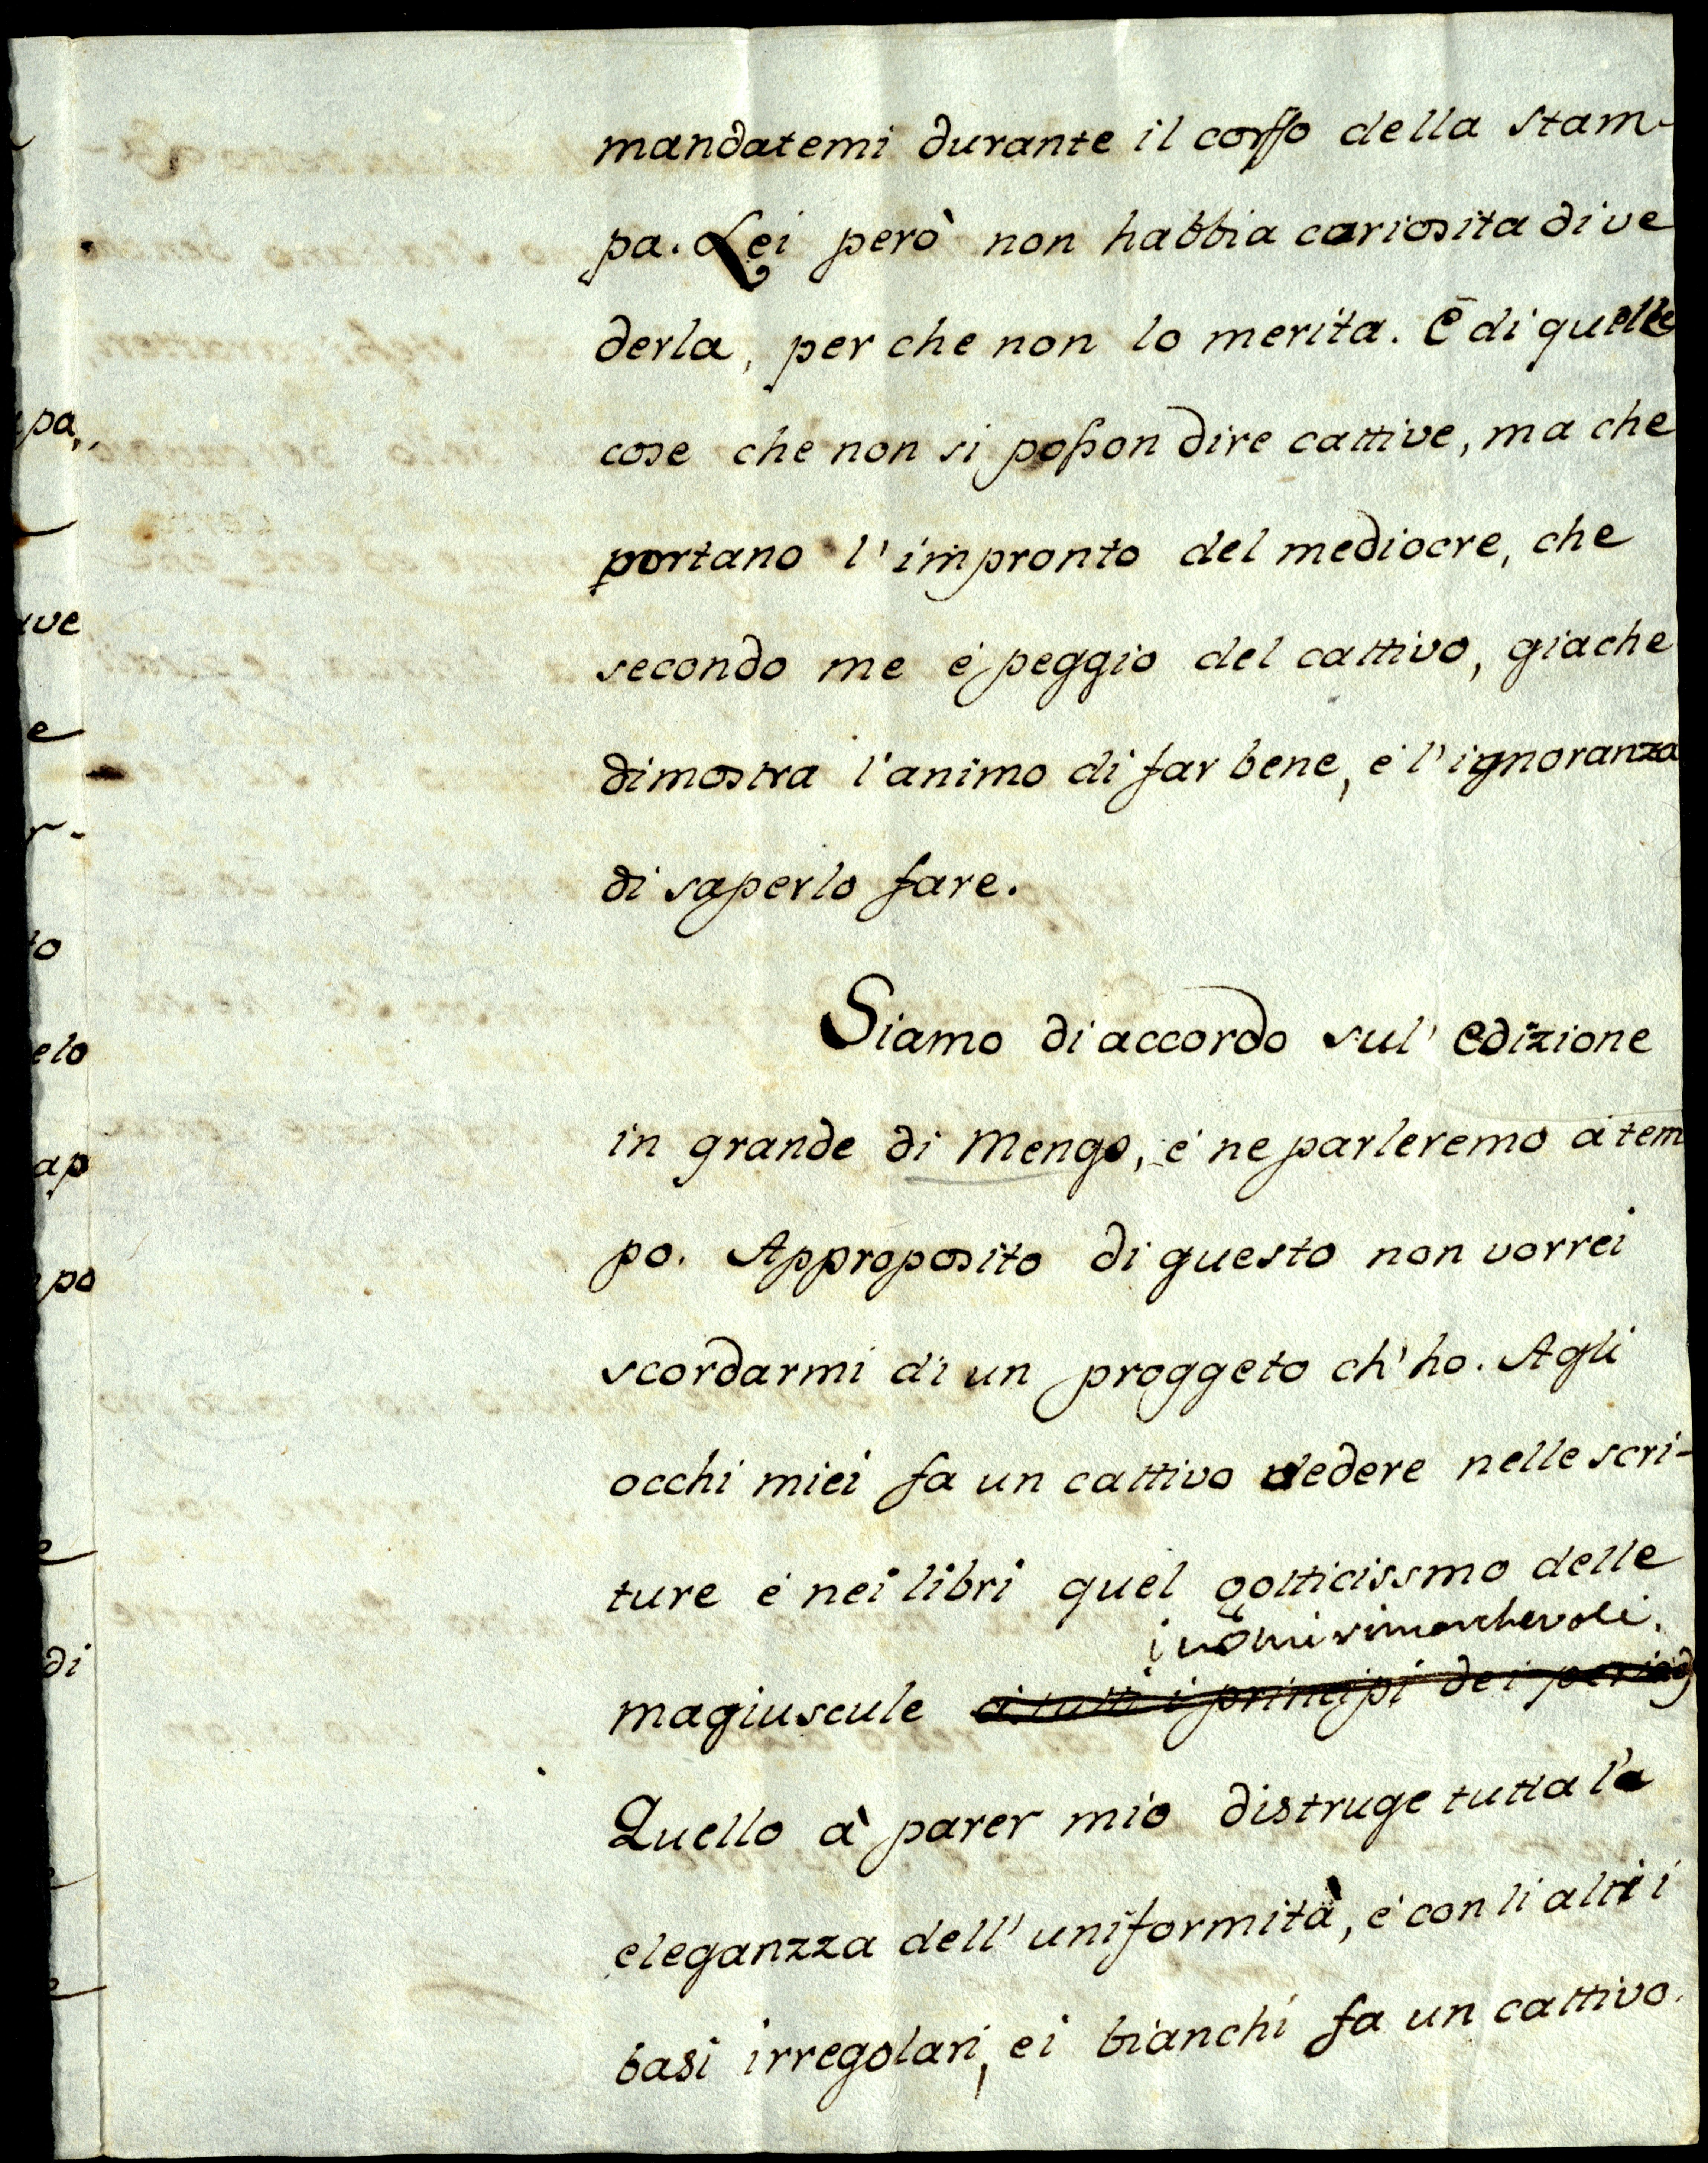 mandatemi durante il corsso della stam-
pa. Lei però non habbia cariosita di ve
derla, per che non lo merita. È di quelle
cose che non si posson dire cattive, ma che
portano l'impronto del mediocre, che
secondo me é peggio del cattivo, giache
dimostra l'animo di far bene, é l'ignoranza
di saperlo fare.
Siamo di accordo sul' edizione
in grande di Mengs, é ne parleremo á tem
po. Approposito di questo non vorrei
scordarmi di un proggeto ch' ho. Agli
occhi miei fa un cattivo vedere nelle scri-
ture é nei libri quel gotticissmo delle
i nomi rimarchevoli.
magiuscule á tutti i principi dei periodi
Quello à parer mio distruge tutta l'a
eleganzza dell' uniformità, é con li altri i
basi irregolari, ei bianchi fa un cattivo
pa,
ve
e
r-
to
elo
ap
po
e
di